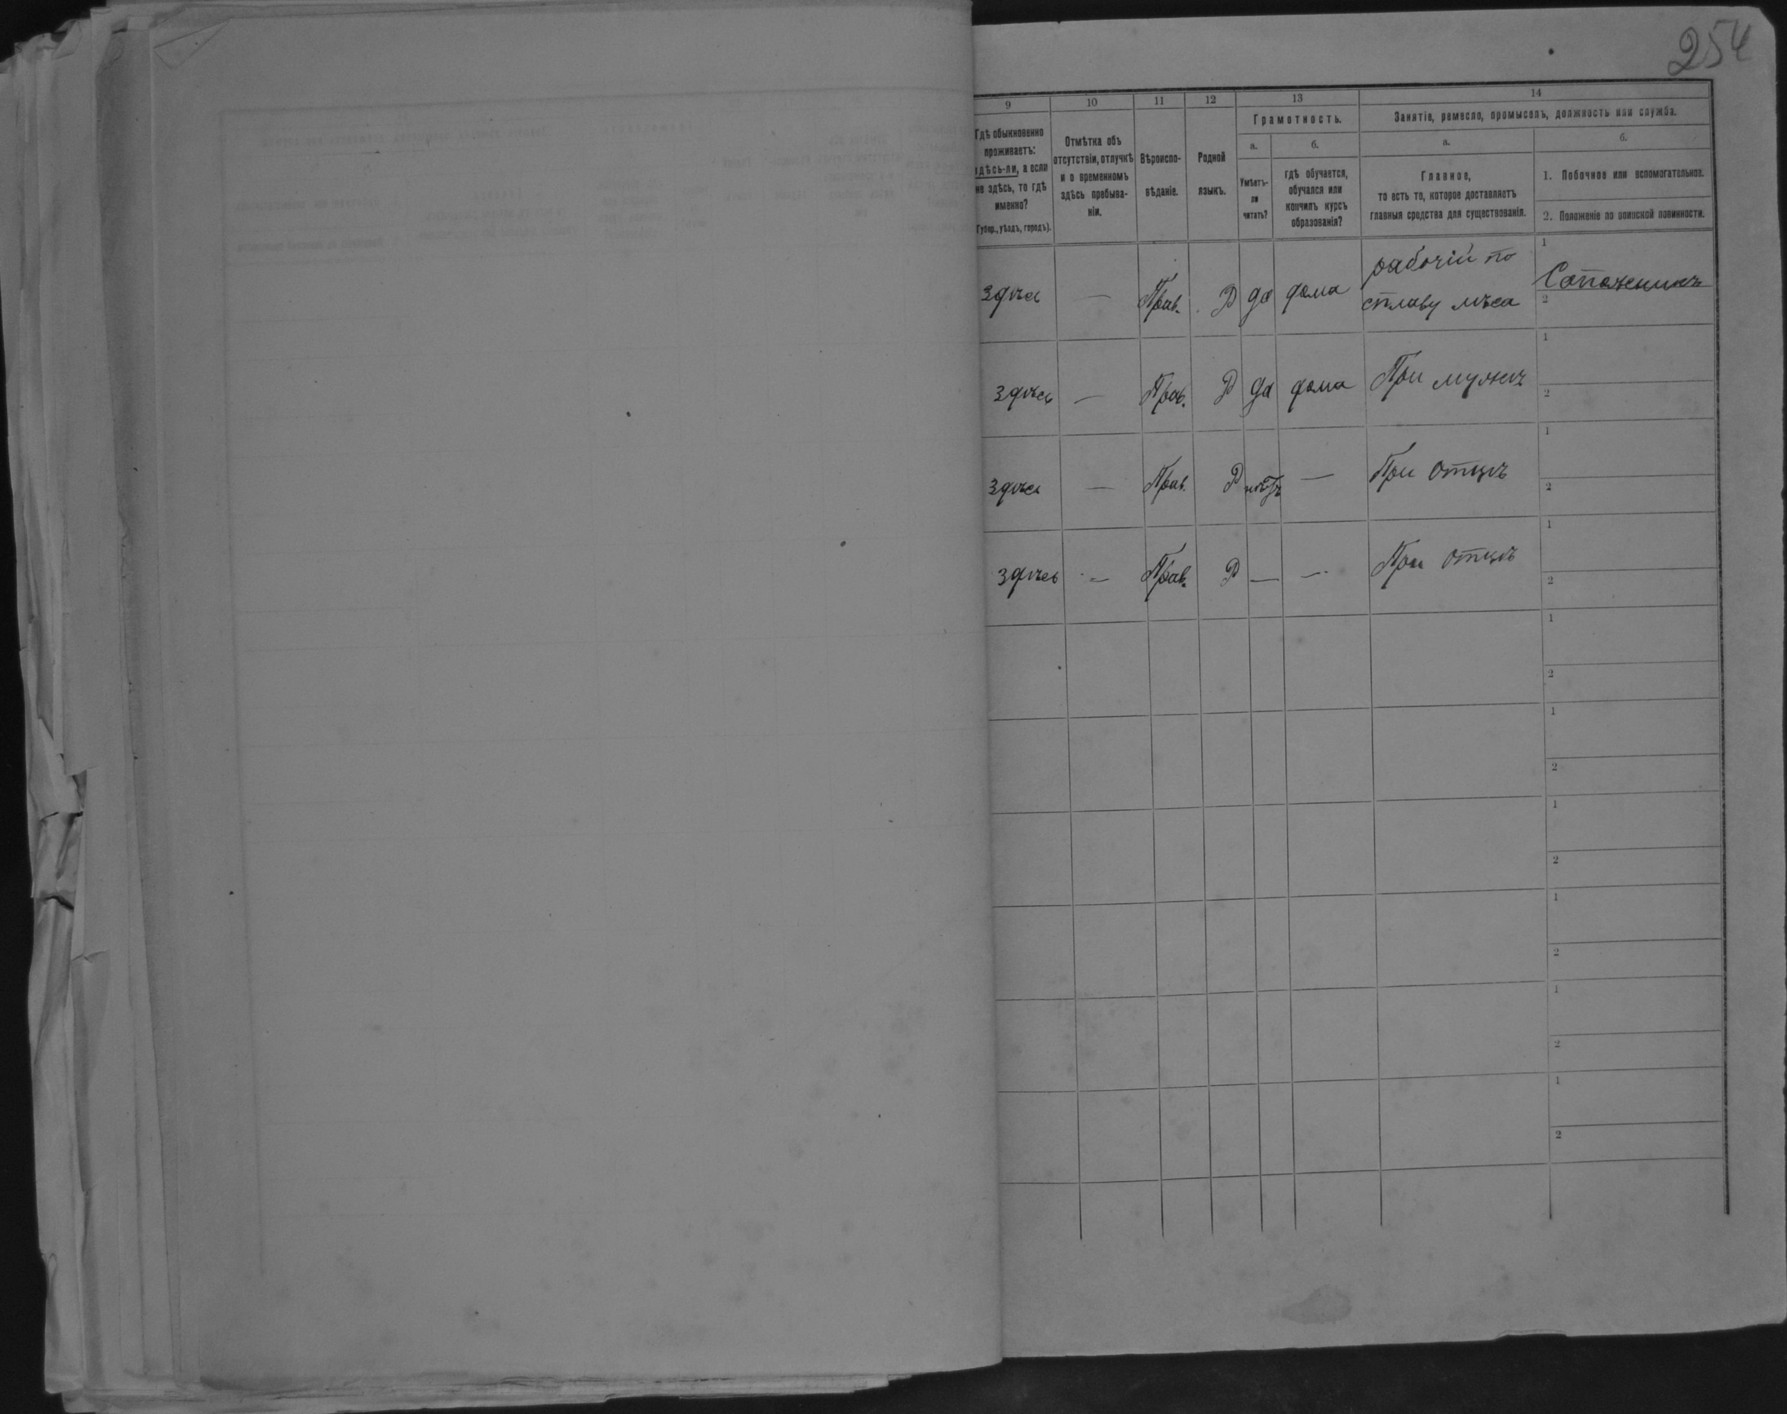 254
9 10 11 12 13 14
Гдѣ обыкновенно
проживаетъ:
здѣсь-ли, а если
не здѣсь, то гдѣ
именно?
(Губер., уѣздъ, городъ).
Отмѣтка объ
отсутствіи, отлучкѣ
и о временномъ
здѣсь пребыва-
ніи.
Вѣроиспо-
вѣданіе.
Родной
языкъ.
Грамотность.
а.
Умѣетъ-
ли
читать?
б.
гдѣ обучается,
обучался или
кончилъ курсъ
образованія?
Занятіе, ремесло, промыселъ, должность или служба.
а.
Главное,
то есть то, которое доставляетъ
главныя средства для существованія.
б.
1. Побочное или вспомогательное.
2. Положеніе по воинской повинности.
здѣсь — Прав. Р да дома рабочій по
сплаву лѣса
1 Сапожникъ
2
здѣсь — Прав. Р да дома При мужѣ
1
2
здѣсь — Прав. Р нѣтъ — При отцѣ
1
2
здѣсь — Прав. Р — — При отцѣ
1
2
1
2
1
2
1
2
1
2
1
2
1
2